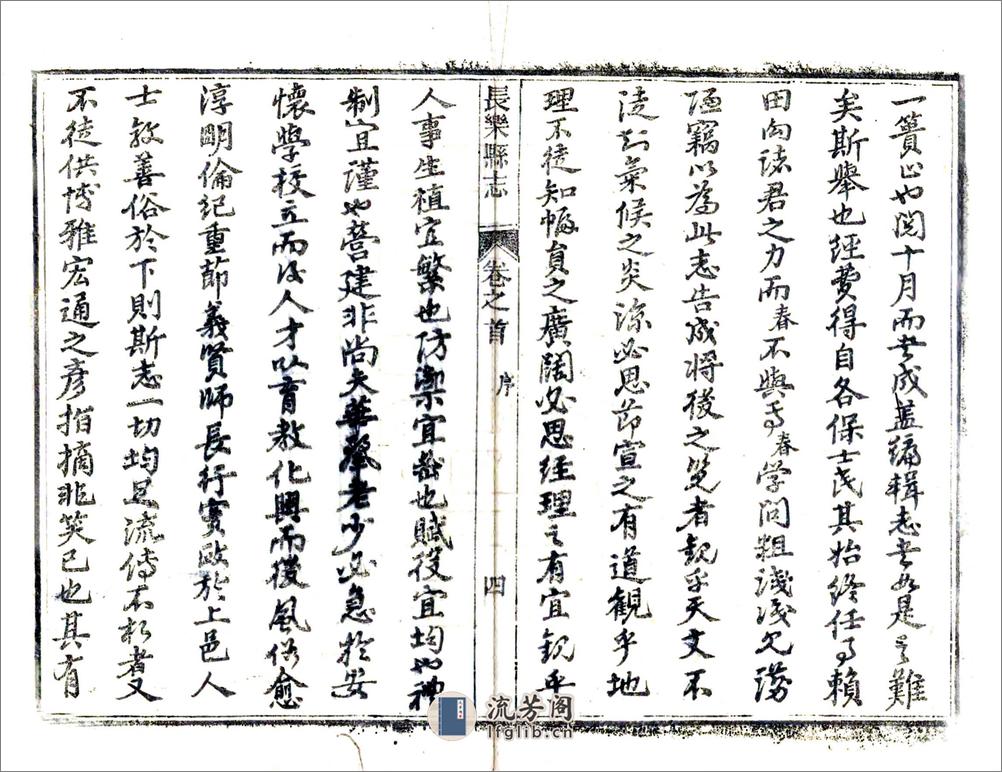 一簣止也閱十月而書成蓋編輯志書如是之難
矣斯舉也經費得自各保士民其始終任事賴
田勾諸君之力而春不與焉春學問粗淺識見譾
陋竊以為此志告成將後之覽者觀乎天文不
徒知氣候之炎涼必思節宣之有道觀乎地
理不徒知幅員之廣闊必思經理之有宜觀乎
長樂縣志
卷之首
序
四
人事生植宜繁也防禦宜密也賦役宜均也禮
制宜謹也營建非尚夫華老少必急於安
懷學校立而後人才以育教化興而後風俗愈
淳明倫紀重節義賢師長行實政於上邑人
士敦善俗於下則斯志一切均足流傳不朽者又
不徒供博雅宏通之彥指摘非笑已也其有
流芳阁
lfglib.cn